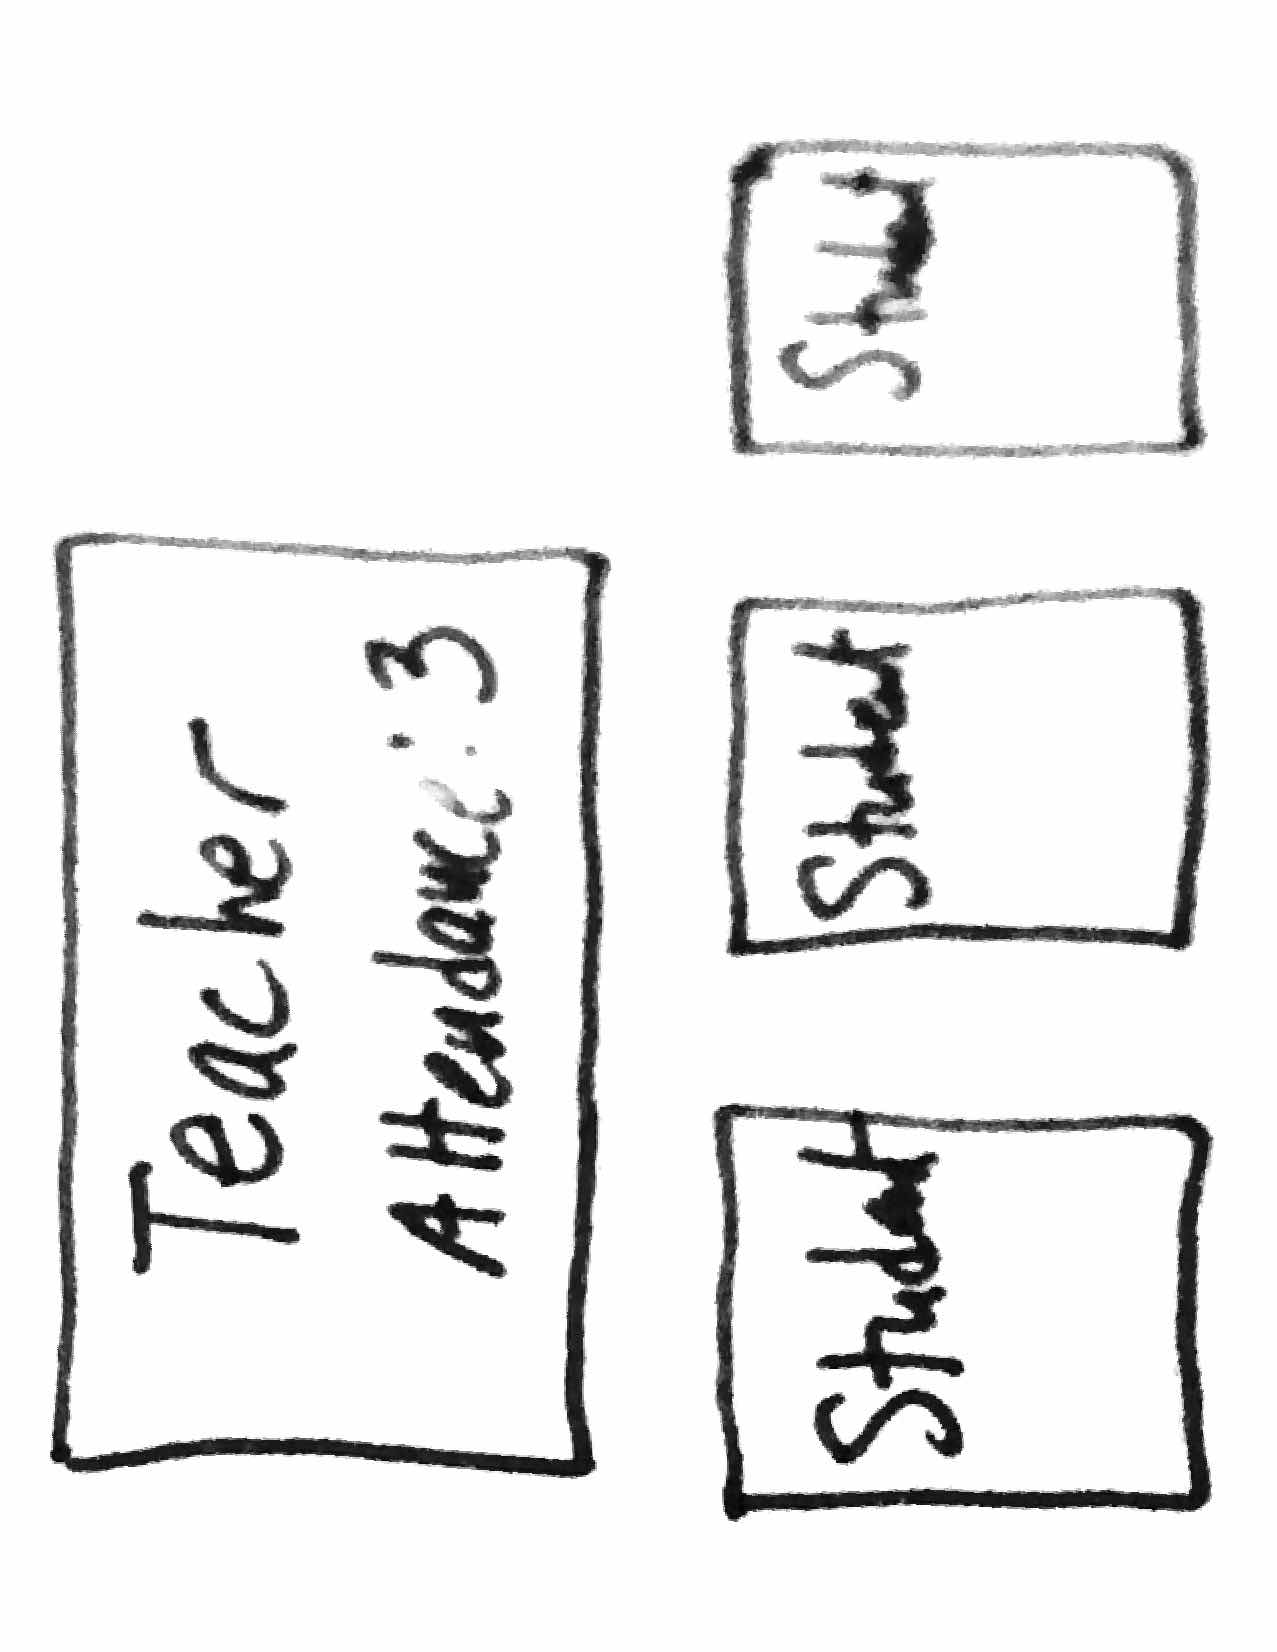 Teacher
Attendance: 3
Student
Student